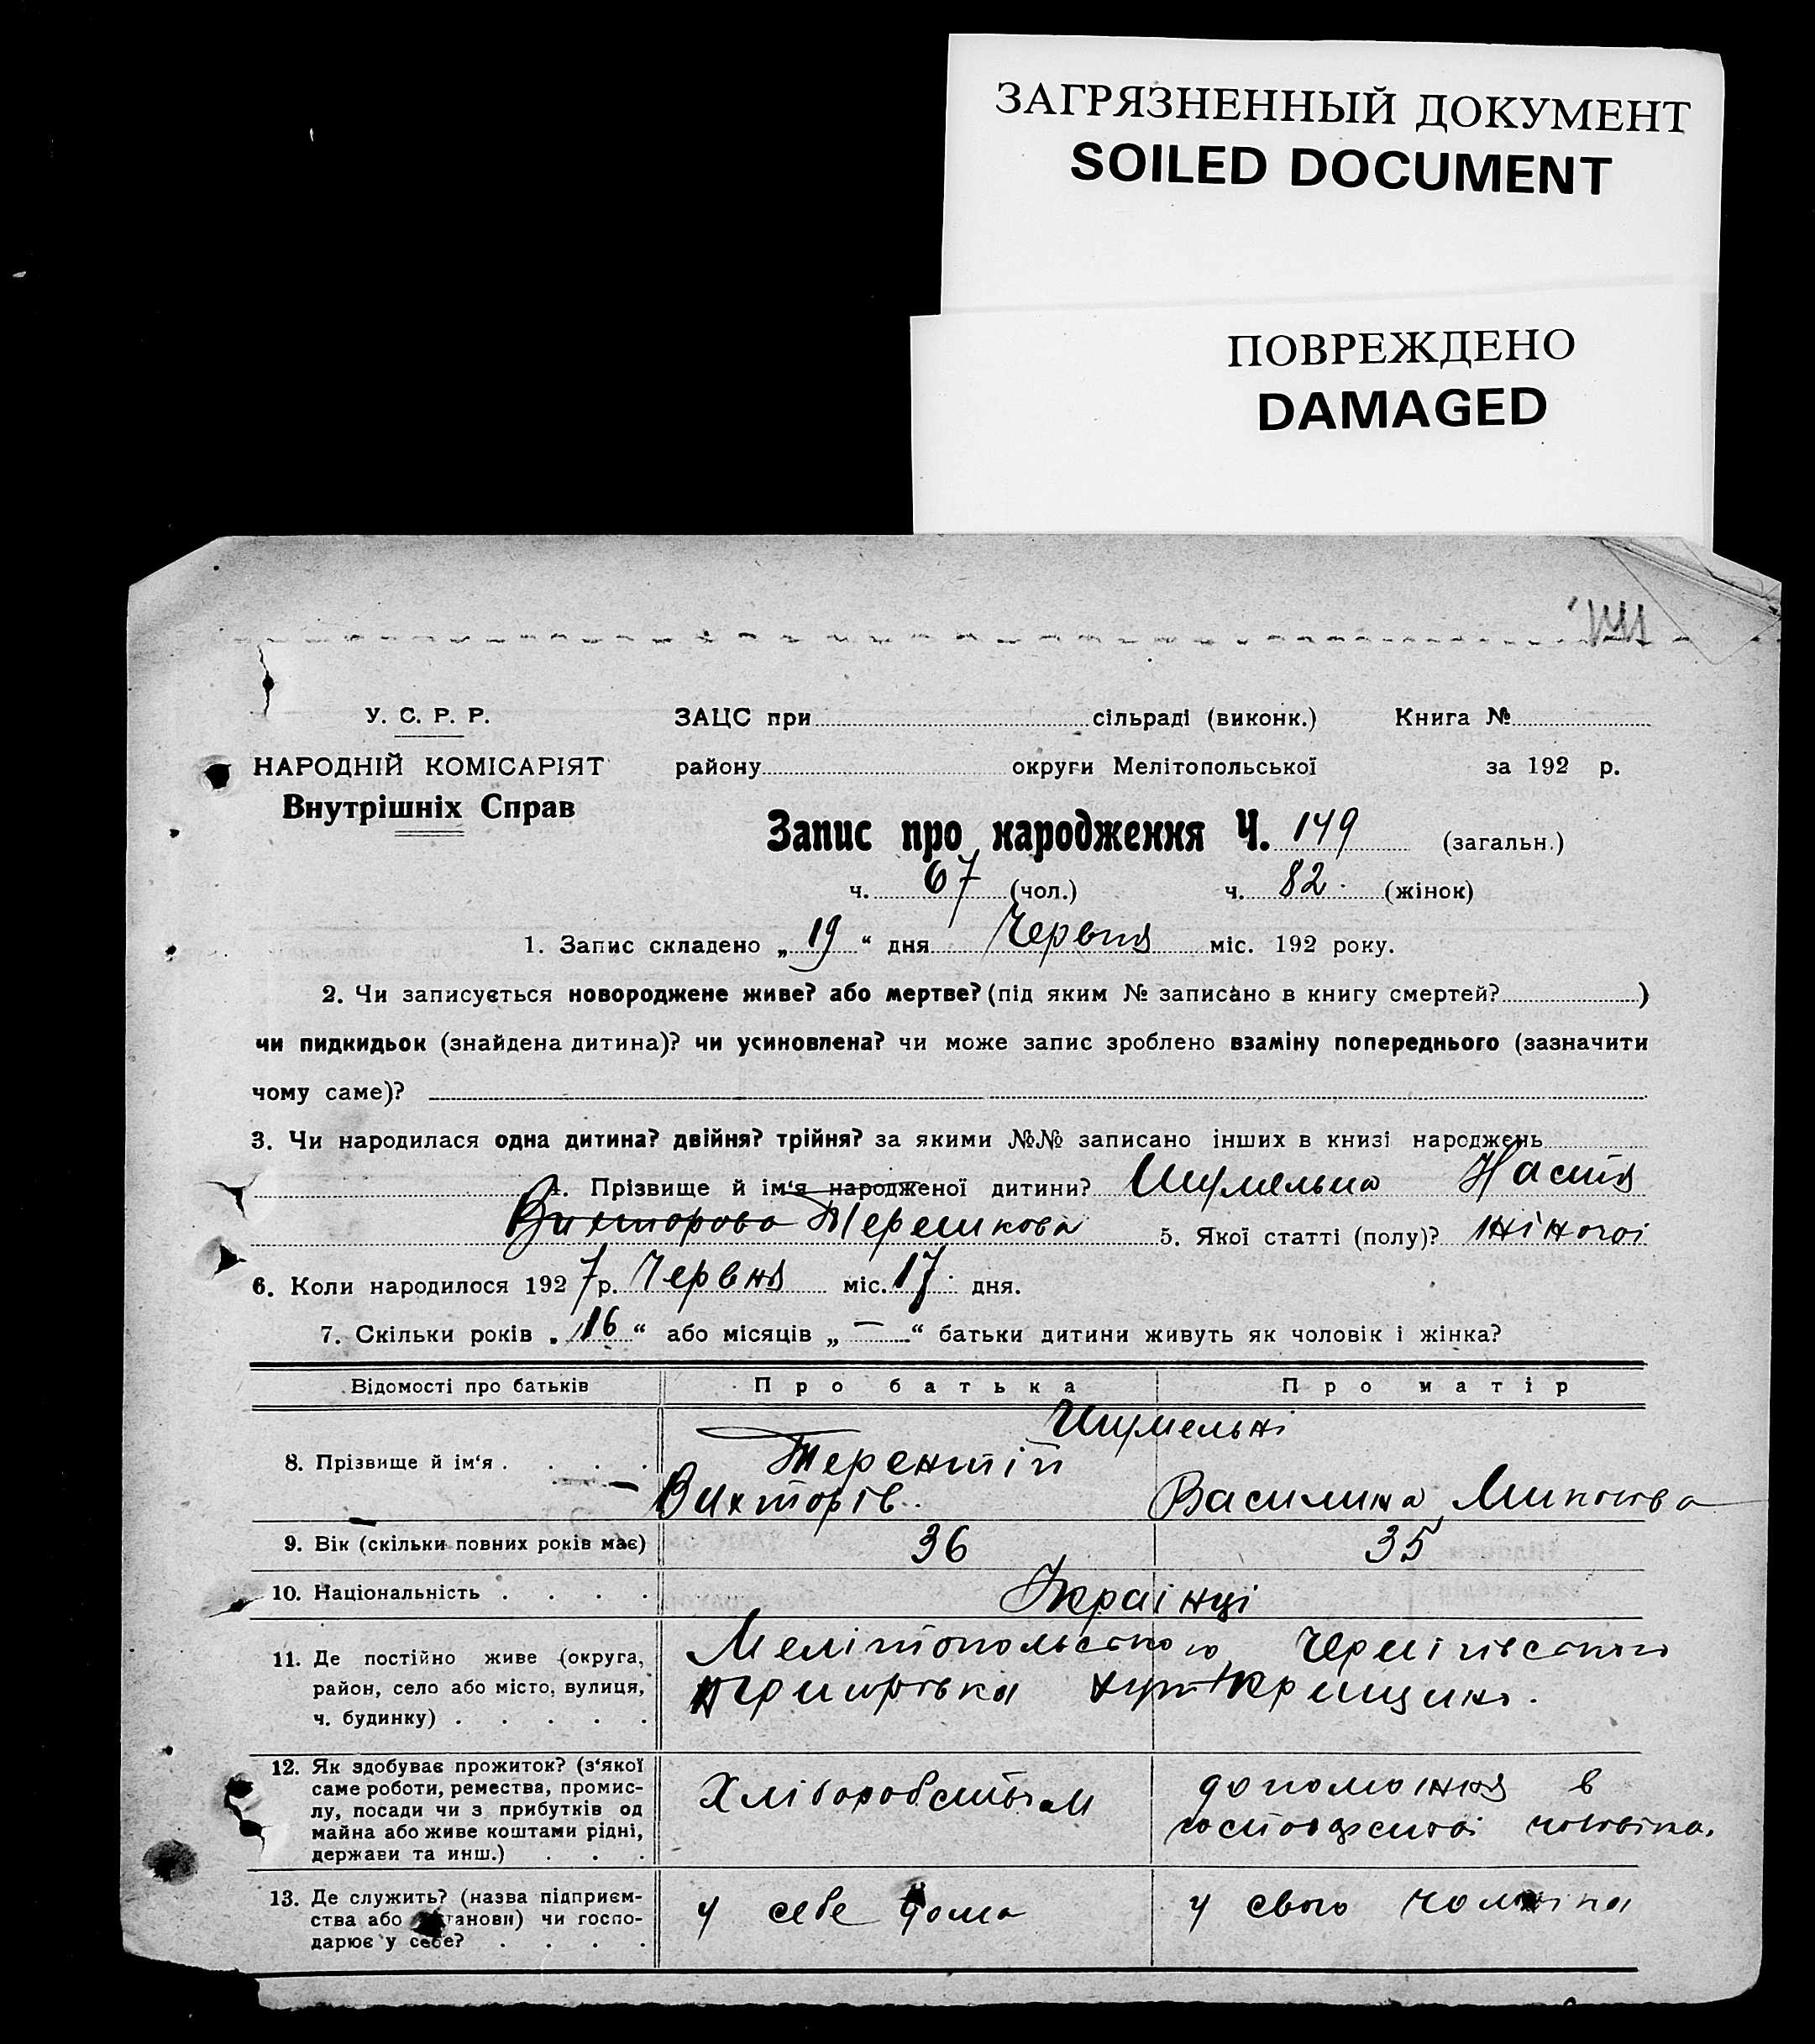 ЗАГРЯЗНЕННЫЙ ДОКУМЕНТ
SOILED DOCUMENT
ПОВРЕЖДЕНО
DAMAGED
У. С. Р. Р.
ЗАЦС при сільраді (виконк.) Книга №
НАРОДНІЙ КОМІСАРІЯТ
району округи Мелітопольської за 192 р.
Внутрішніх Справ
Запис про народження Ч. 149 (загальн.)
ч. 67 (чол.) ч. 82. (жінок)
1. Запис складено „ 19 “ дня Червня міс. 192 року.
2. Чи записується новороджене живе? або мертве? (під яким № записано в книгу смертей? )
чи пидкидьок (знайдена дитина)? чи усиновлена? чи може запис зроблено взаміну попереднього (зазначити
чому саме)?
3. Чи народилася одна дитина? двійня? трійня? за якими №№ записано інших в книзі народжень
4. Прізвище й ім‘я народженої дитини? Шумельна Настя
Вихторова Терешкова 5. Якої статті (полу)? жіночої
6. Коли народилося 1927 р. Червня міс. 17 дня.
7. Скільки років „ 16 “ або місяців „ — “ батьки дитини живуть як чоловік і жінка?
Відомості про батьків Про батька Про матір
Шумельні
8. Прізвище й ім‘я . . . . Терентій
Вихторів. Василина
9. Вік (скільки повних років має) 36 35
10. Національність . . . . Українці
11. Де постійно живе (округа, Мелітопольсько
район, село або місто, вулиця,
ч. будинку) . . . . .
12. Як здобуває прожиток? (з‘якої
саме роботи, ремества, промис- Хліборобством допоможня в
лу, посади чи з прибутків од
майна або живе коштами рідні, чоловіка.
держави та инш.) . . .
13. Де служить? (назва підприєм- у себе дома у свого чоловіка
ства або установи) чи госпо-
дарює у себе? . . . .